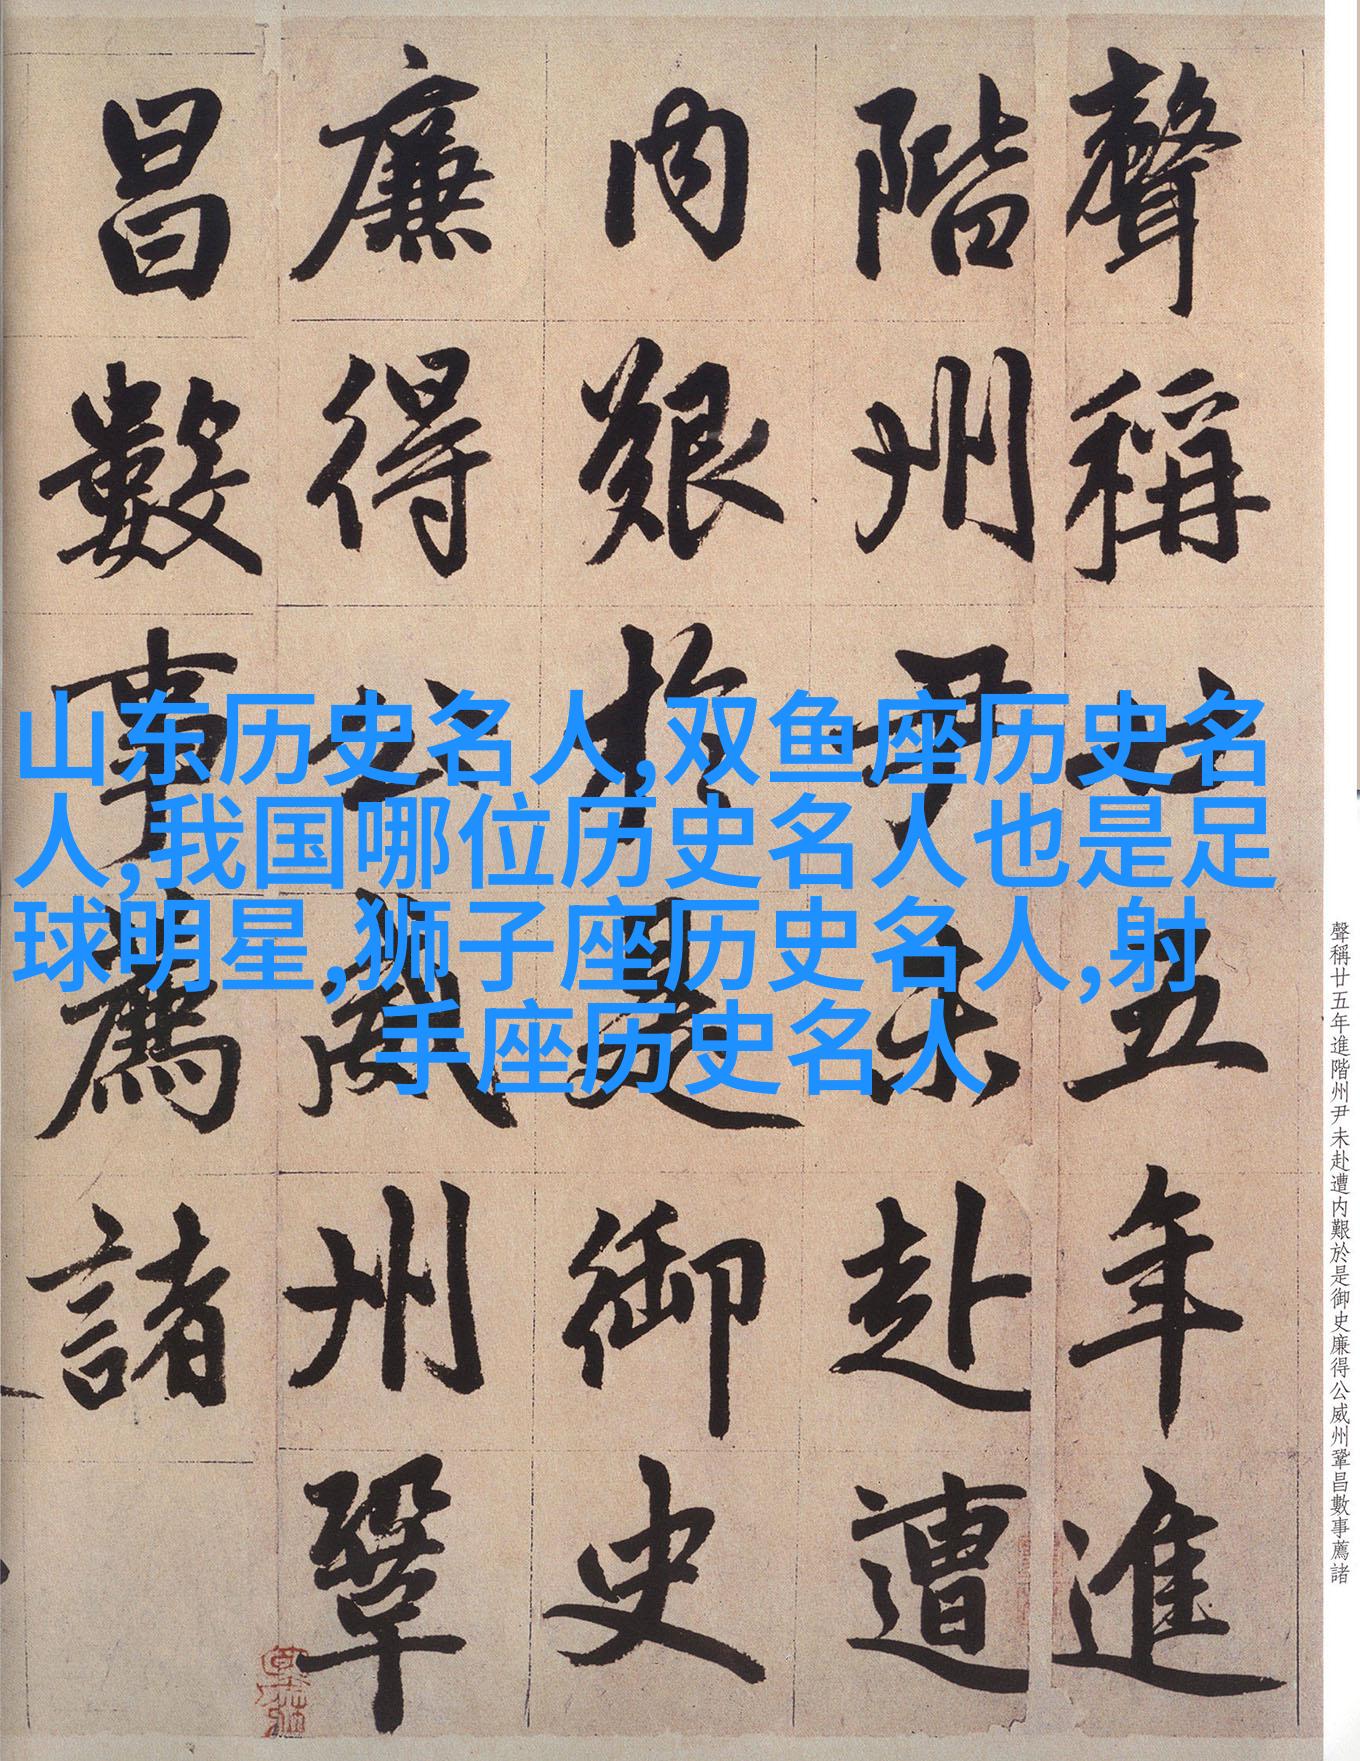 聲稱廿五年進
階州尹未赴遭
内艱於是御史
廉得公威州鞏
昌數事薦諸
山东历史名人,双鱼座历史名
人,我国哪位历史名人也是足
球明星,狮子座历史名人,射
手座历史名人
聲稱廿五年進階州尹未赴遭内艱於是御史廉得公威州鞏昌數事薦諸